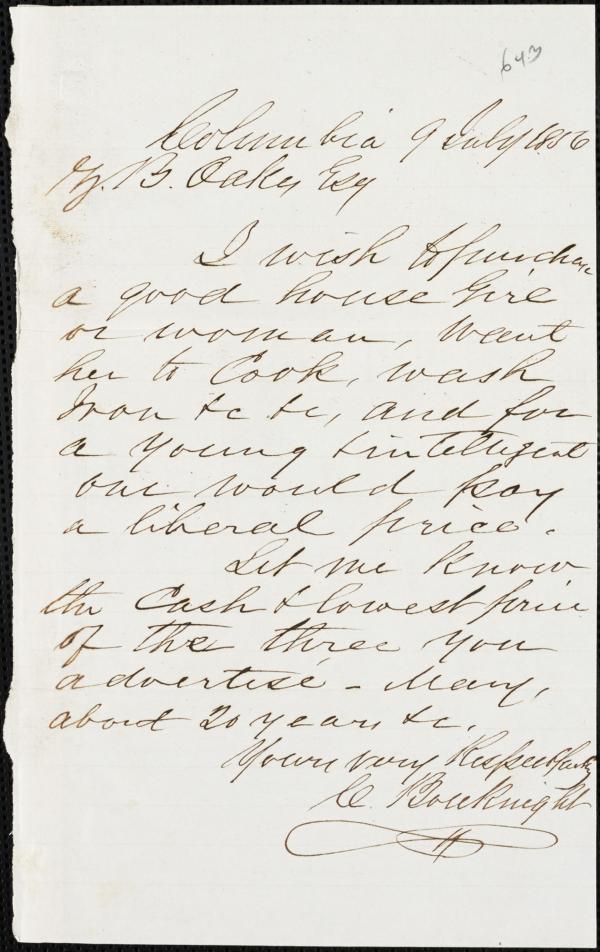 643
Columbia 9 July 1856
Z. B. Oakes Esq
I wish to purchase
a good house Girl
or woman, Want
her to Cook, wash
Iron &c &c, and for
a young & intelligent
one would pay
a liberal price.
Let me know
the Cash & lowest price
of the three you
advertise - Mary,
about 20 years &c.
Yours very Respectfully
C. Bouknight